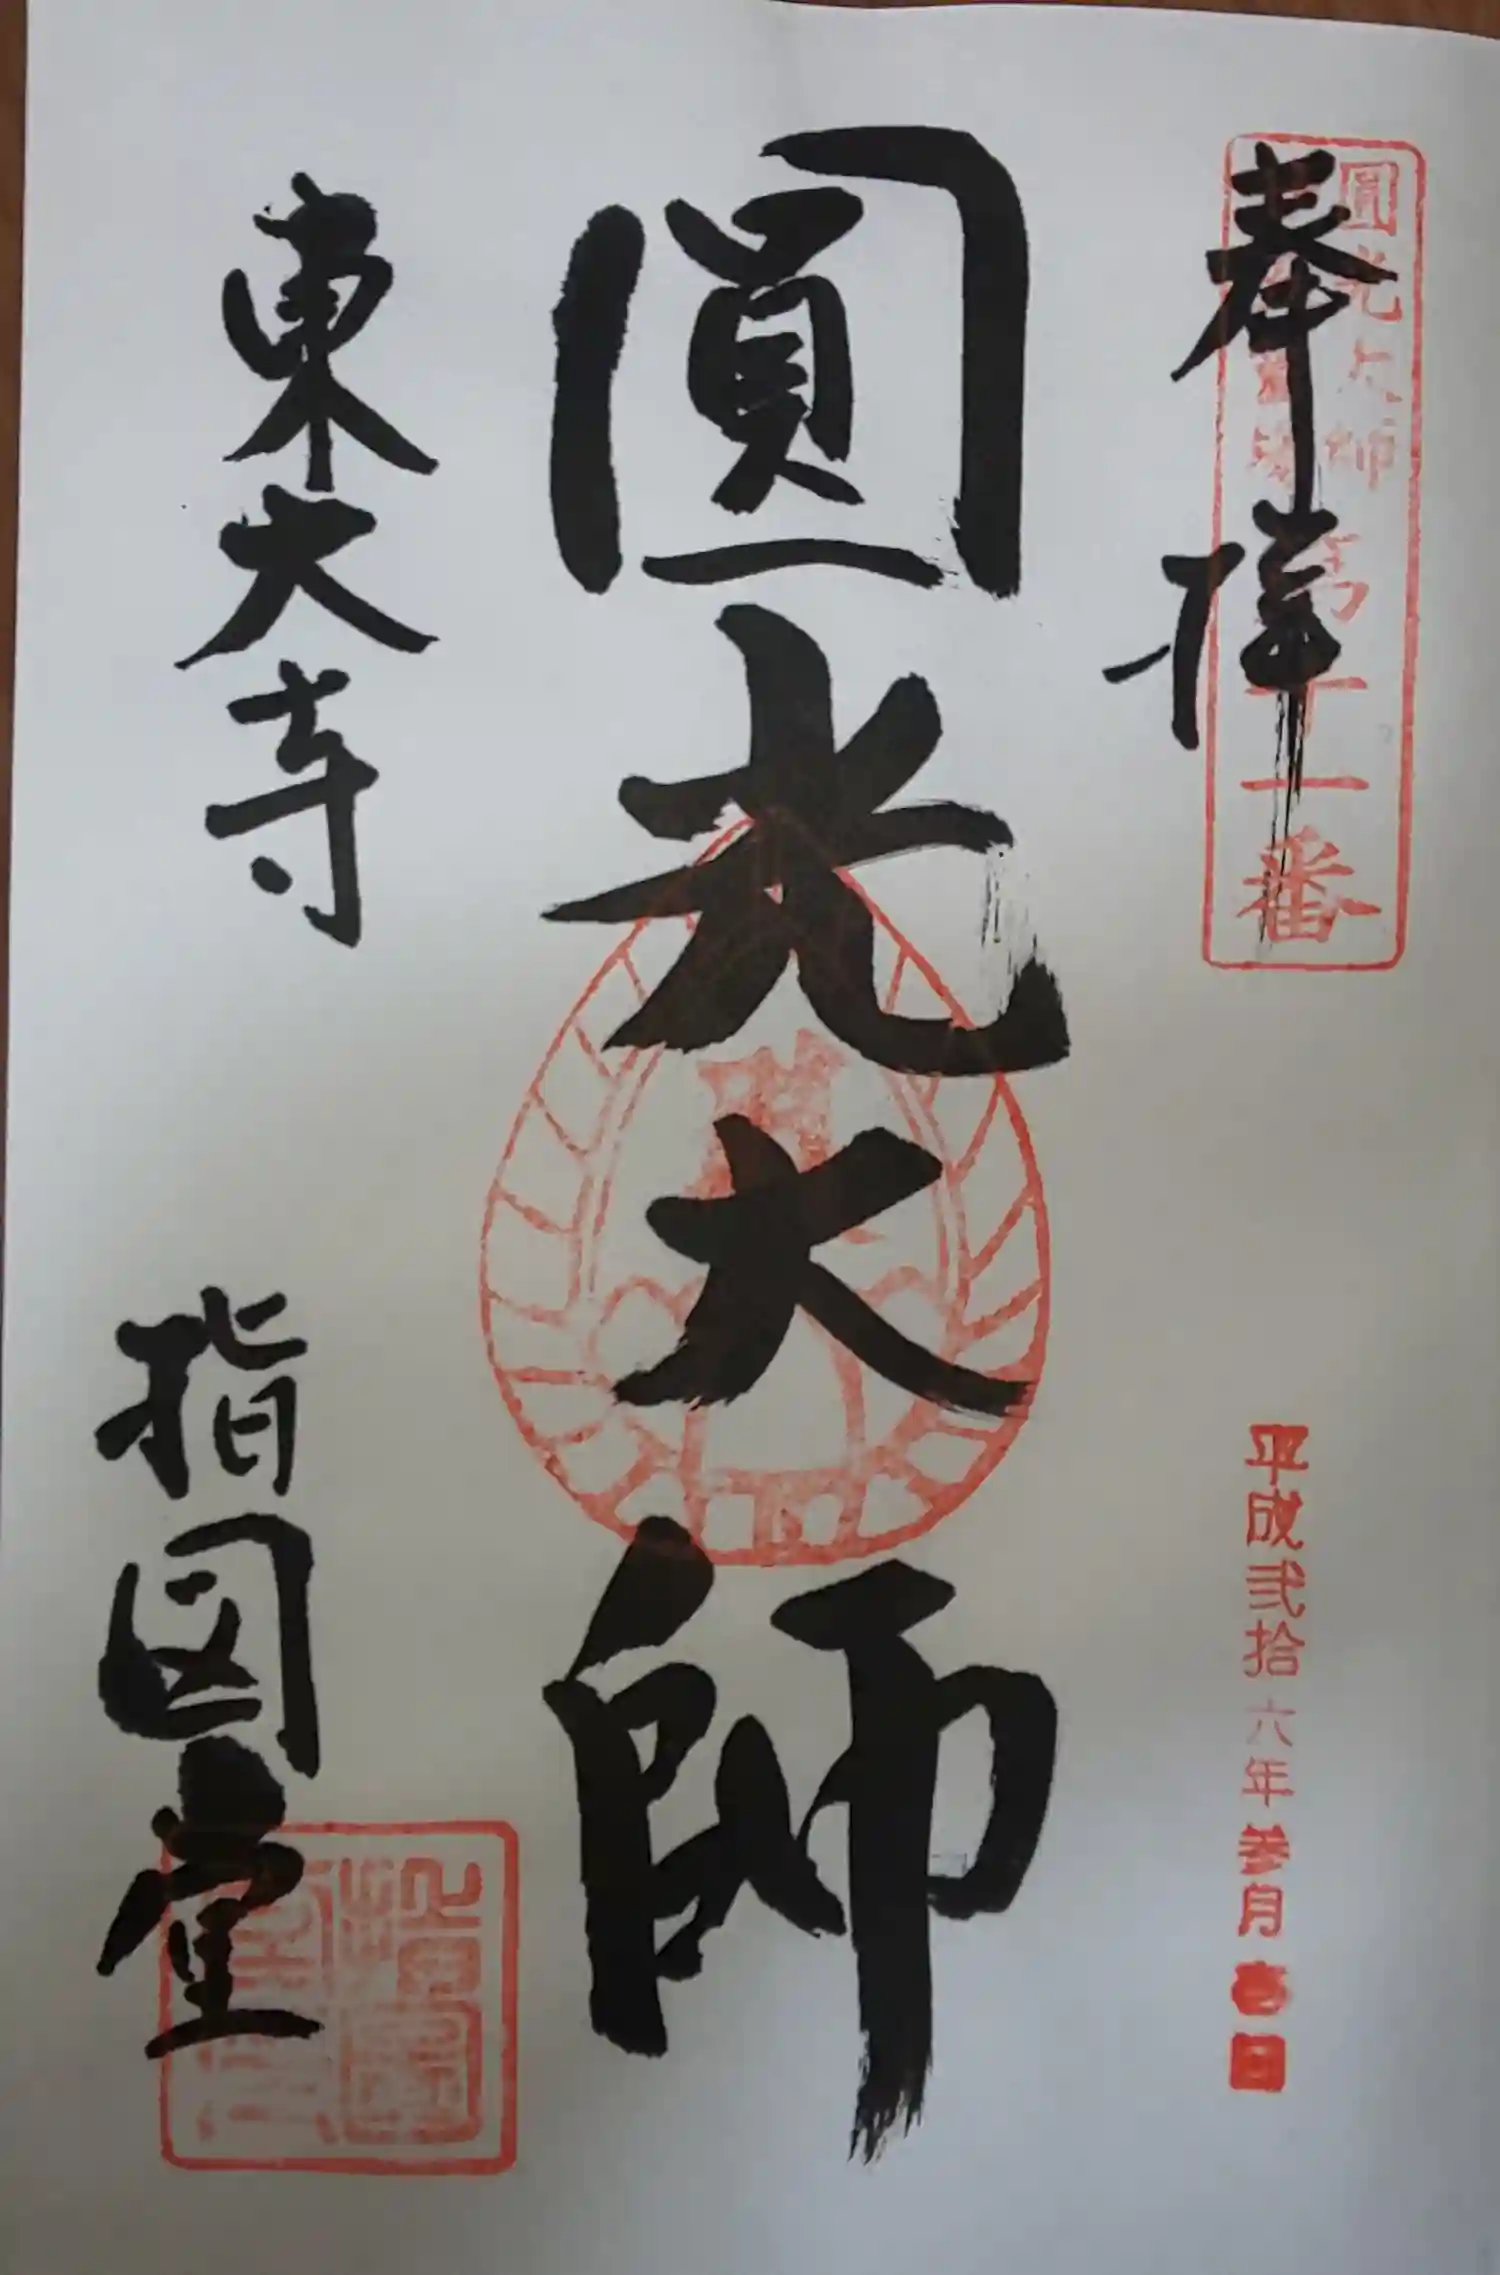 奉拝
圓光大師
第十一番
平成弐拾六年参月
日
圓光大師
東大寺
指図堂